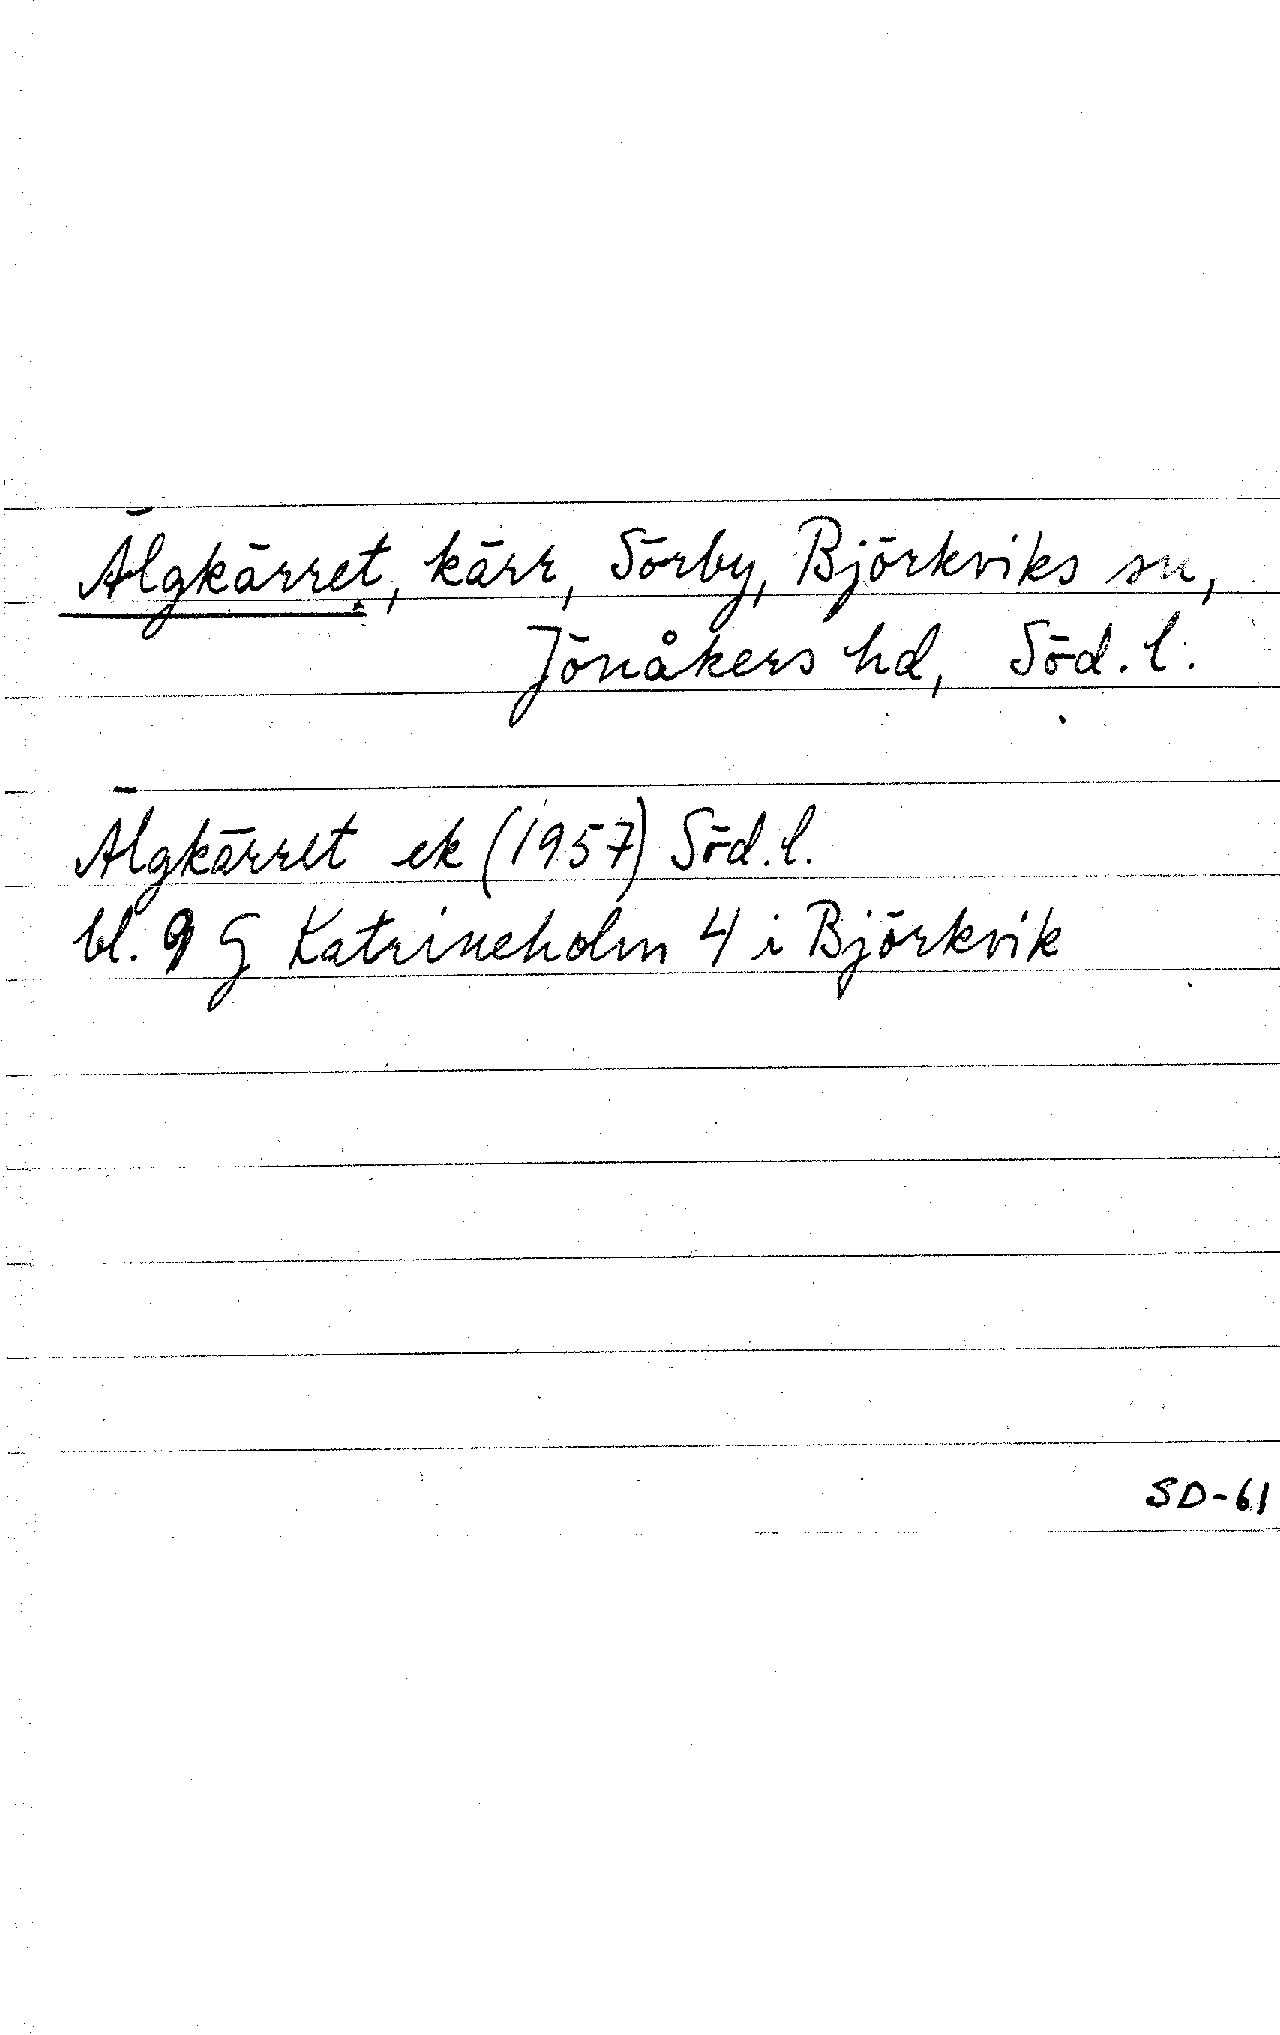 Älgkärret, kärr, Sörby, Björkviks sn,
Jönåkers hd, Söd. l.
Älgkärret ek (1957) Söd. l.
bl. 9 G Katrineholm 4 i Björkvik
SD-61